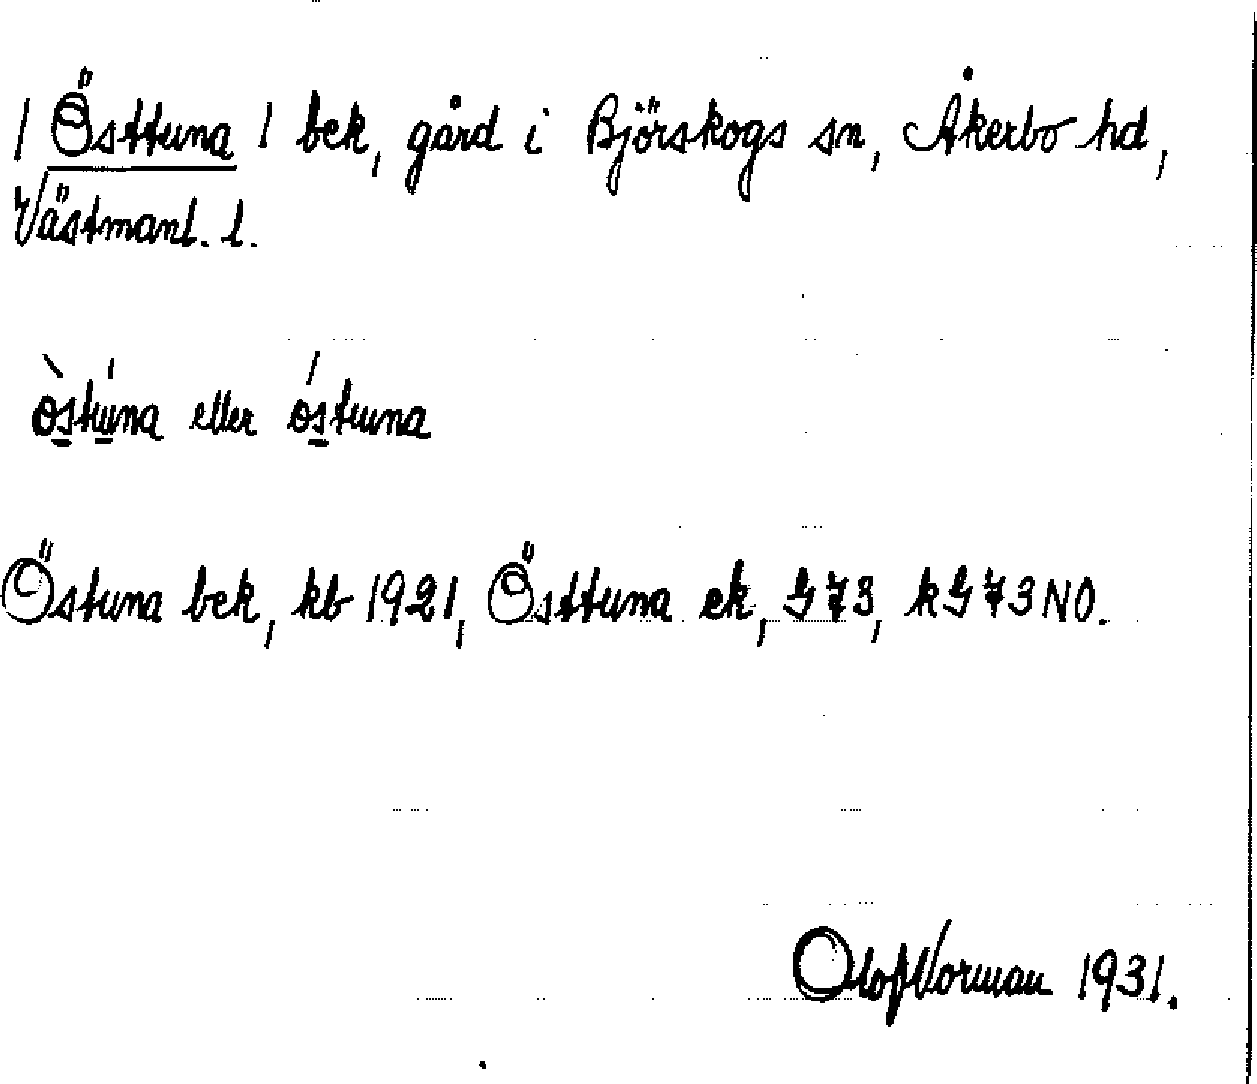 / Östtuna / bek, gård i Björskogs sn, Åkerbo hd,
Västmanl. l.
òstúna eller óstuna
Östuna bek, kb 1921, Östtuna ek, G 73, kG 73 NO.
Olof Norman 1931.